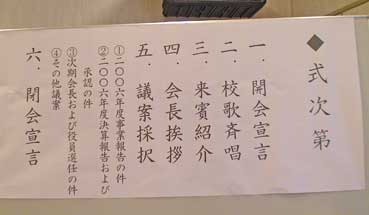 ◆ 式次第
一．開会宣言
二．校歌斉唱
三．来賓紹介
四．会長挨拶
五．議案採択
①二〇〇六年度事業報告の件
②二〇〇六年度決算報告および
承認の件
③次期会長および役員選任の件
④その他議案
六．閉会宣言